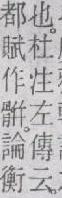 也。杜注左傳云。
都賦作骿。論衡